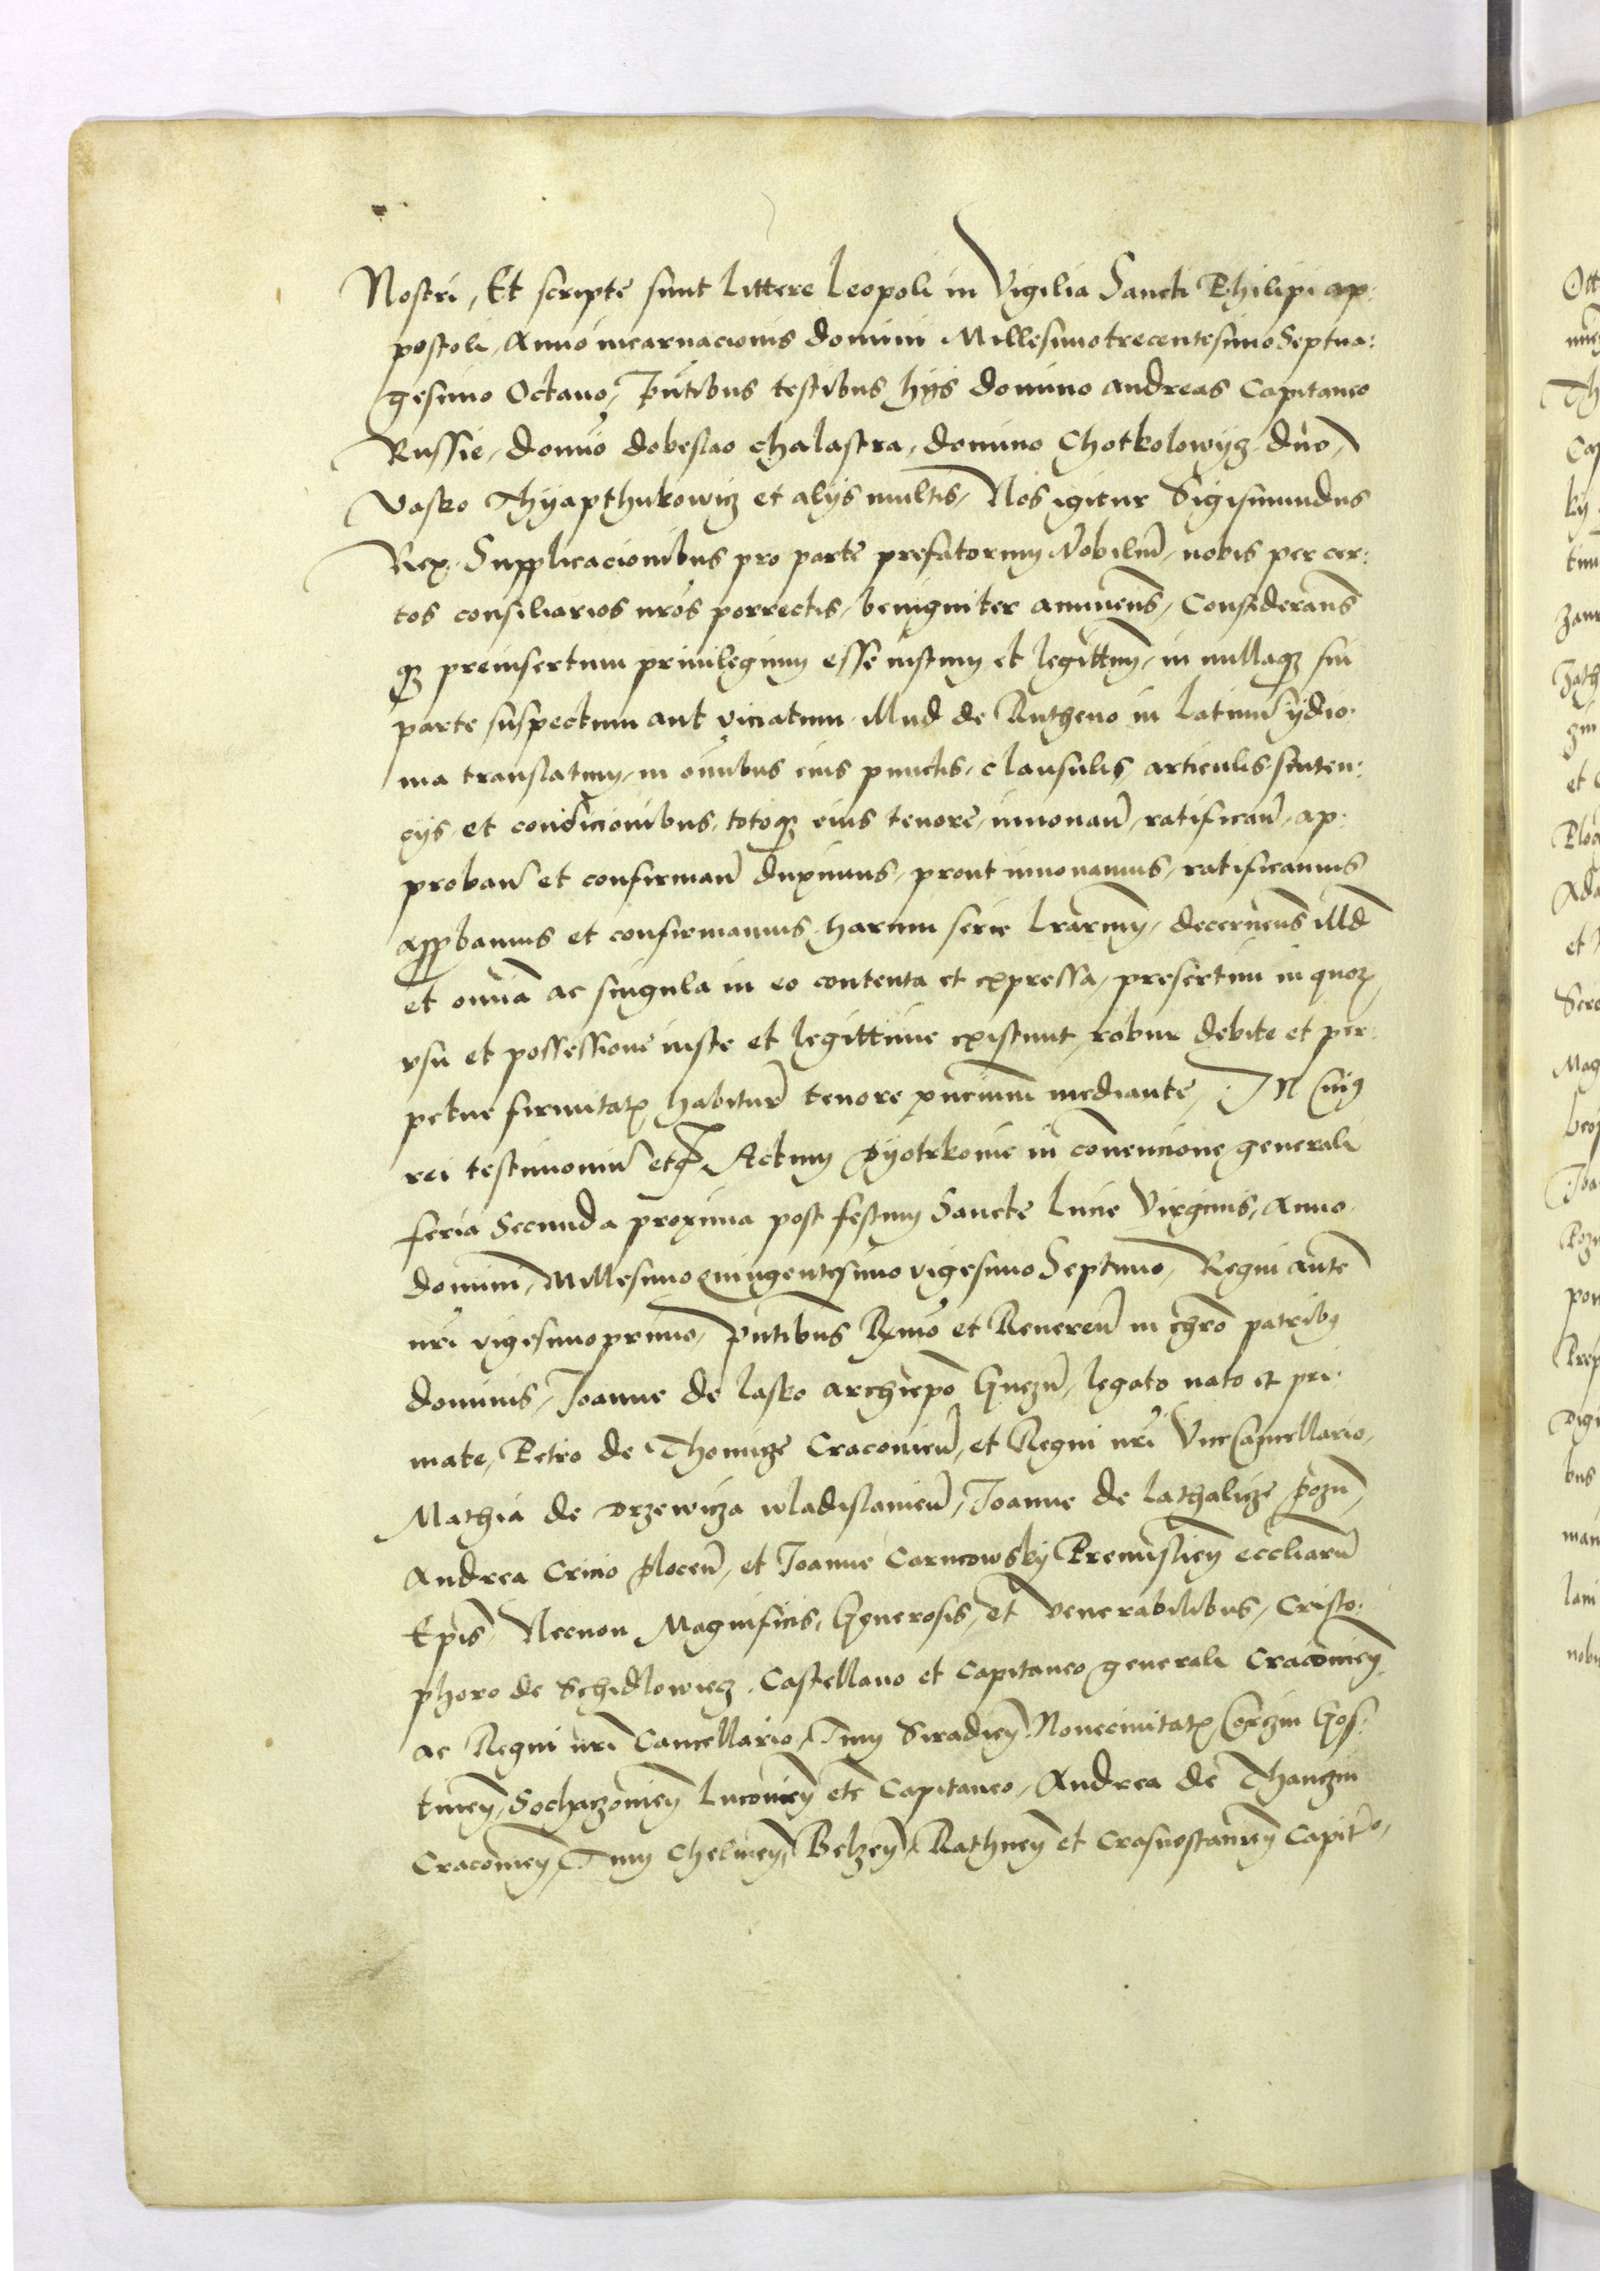 Nostri, Et scripte sunt littere Leopoli in Vigilia Sancti Philipi ap:
postoli, Anno incarnacionis domini Millesimotrecentesimo Septua:
gesimo Octauo, Pntibus testibus hijs domino andreas Capitaneo
Russie, domno dobeslao chalastra, domino Chotkolowijcz, dno,
Vasko Thijapthukowicz et alijs multis, Nos igitur Sigismundus
Rex, Supplicacionibus pro parte prefatorum Nobiliu, nobis per cer:
tos consiliarios nros porrectis, benigniter annuens, Considerans
qz preinsertum priuilegium esse iustum et legittimu, in nullaqz sui
parte suspectum aut viciatum, illud de Rutheno in Latinu ydio:
ma translatum, in omnibus eius punctis, clausulis, articulis, senten:
cijs, et condicionibus, totoqz eius tenore, innouan, ratifican, ap:
proban et confirman duximus, prout innouamus, ratificamus
approbamus et confirmamus, harum serie lrarum, decernens illud
et omnia ac singula in eo contenta et expressa, presertim in quoz
vsu et possessione iuste et legittime existunt, robur debite et per:
petue firmitatis habitur tenore pncium mediante, In cuius
rei testimoniu etc Actum Pyotrkouie in conuencione generali
feria Secunda proxima post festum Sancte Lucie Virginis, Anno
domini, Millesimoquingentesimo vigesimo Septimo, Regni aute
nri vigesimoprimo, Pntibus Rxmo et Reueren in chro patribus
dominis, Joanne de Lasko archiepo Gnezn, legato nato et pri:
mate, Petro de Thomicze Cracouien, et Regni nri Vicecancellario,
Mathia de Drzewicza wladislauien, Joanne de Lathalicze Pozn,
Andrea Cricio Plocen, et Joanne Carncowskij Premislien eccliaru
Epis, Necnon Magnificis, Generosis, et Venerabilibus, Cristo:
phoro de Schidlowiecz, Castellano et Capitaneo generali Cracouien,
ac Regni nri Cancellario, Tum Siradien Nouecivitatis Corczin Gos:
tinen, Sochaczouien Lucouien etc Capitaneo, Andrea de Thanczin
Cracouien, Tum Chelmen, Belzen, Rathnen et Crasnostauien Capitno,